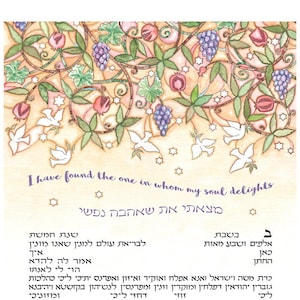 I have found the one in whom my soul delights
מצאתי את שאהבה נפשי
ב בשבת שנת חמשת
אלפים ושבע מאות לבריאת עולם למנין שאנו מונין
כאן איך
החתן אמר לה להדא
הוי לי לאנתו
כדת משה וישראל ואנא אפלח ואוקיר ואיזון ואפרנס יתיכי ליכי כהלכות
גוברין יהודאין דפלחין ומוקרין וזנין ומפרנסין לנשיהון בקושטא ויהיבנא
ליכי זוזי דחזי ליכי ומזוניכי